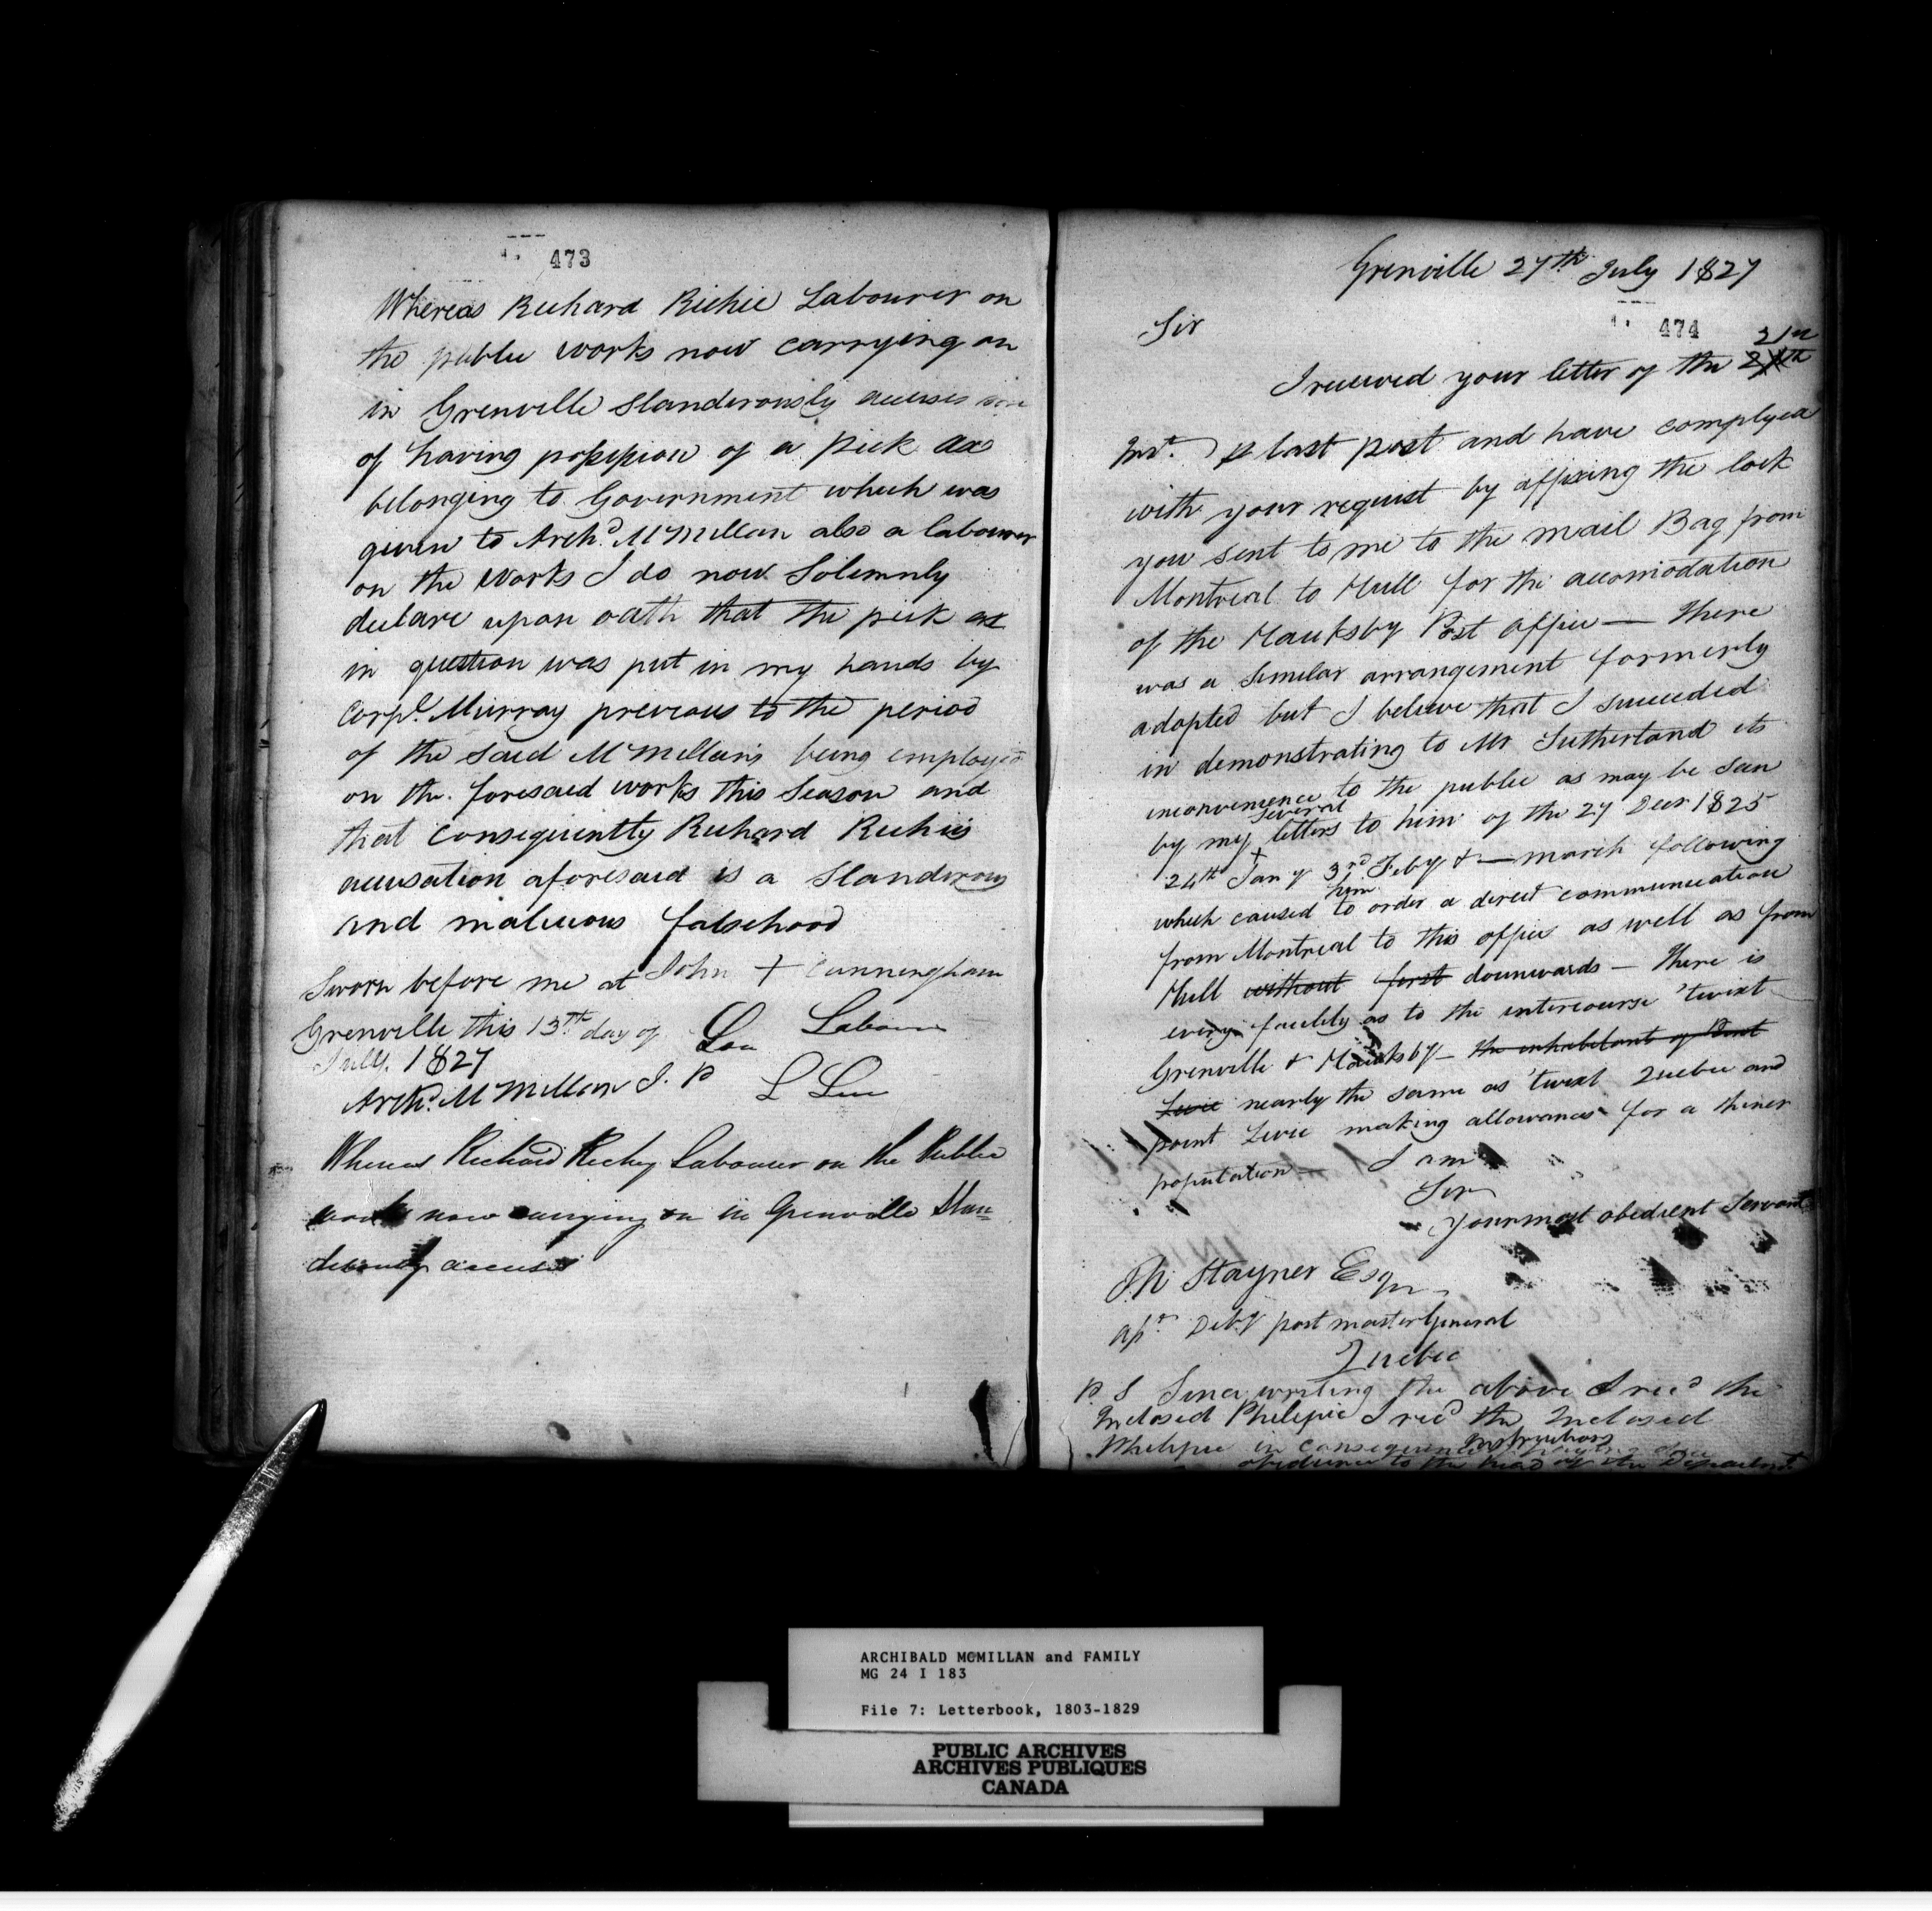 473
Whereas Richard Richie Labourer on
the public works now carrying on
in Grenville Slanderously accuses me
of having possession of a pick axe
belonging to Government which was
given to Archd. McMillan also a labourer
on the works I do now Solemnly
declare upon oath that the pick axe
in question was put in my hands by
Corpl. Murray previous to the period
of the said McMillans being employed
on the foresaid works this Season and
that consequently Richard Richies
accusation aforesaid is a Slanderous
and malicious falsehood
Sworn before me at John + Cunningham
Grenville this 13th day of Labourer
July 1827
Archd. McMillan J. P
Whereas Richard Richy Labourer on the Public
works now carrying on in Grenville Slan=
derously accuses
Grenville 27th July 1827
474
Sir
21st
I received your letter of the 24th
Inst. p last post and have complyed
with your request by affixing the lock
you sent to me to the mail Bag from
Montreal to Hull for the accomodation
of the Hauksby Post office — there
was a Similar arrangement formerly
adopted but I believe that I succeeded
in demonstrating to Mr Sutherland its
inconvenience to the public as may be Seen
several
by my letters to him of the 27 Decr 1825
24th Jany 3rd Feby & — march following
him
which caused to order a direct communication
from Montreal to this office as well as from
Hull without first downwards — There is
every facility as to the intercourse 'twixt
Grenville & Hauksby — the inhabitant of Point
Levie nearly the same as 'twixt Quebec and
point Levie making allowances for a thiner
population — I am
Sir
Your most obedient Servant
Th Stayner Esqr
Deby post master General
Quebec
P. S Since writing the above I recd the
Inclosed Philipic I recd the Inclosed
Philipic in consequence
Instructions
obedience to the head of the Department
ARCHIBALD MCMILLAN and FAMILY
MG 24 I 183
File 7: Letterbook, 1803-1829
PUBLIC ARCHIVES
ARCHIVES PUBLIQUES
CANADA